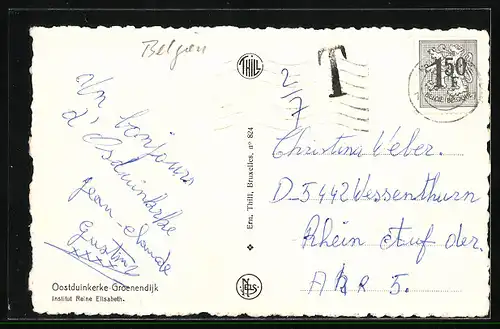 Belgien
Un bonjour
d'Osduinkerke
Jean-Claude
Gustine
xxxxx
Oostduinkerke-Groenendijk
Institut Reine Elisabeth.
THILL
Ern. Thill, Bruxelles, nº 824
NELS
2/7
T
1,50 F
BELGIE-BELGIQUE
Christina Veber.
D_5442 Wessenthurn
Rhein Auf der.
AHR 5.